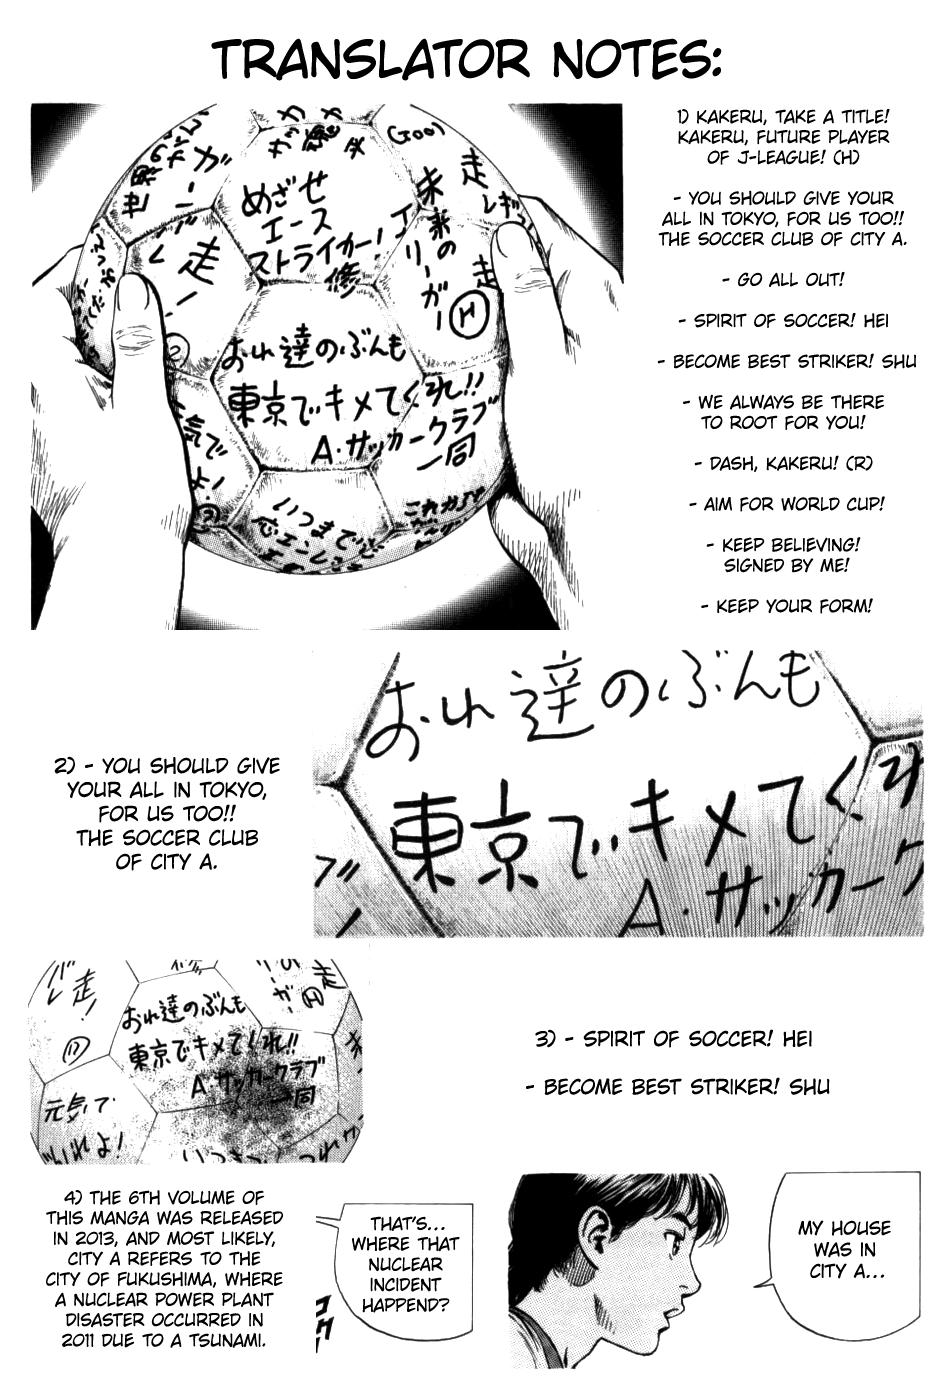 TRANSLATOR NOTES:
1) KAKERU, TAKE A TITLE!
KAKERU, FUTURE PLAYER
OF J-LEAGUE! (H)
- YOU SHOULD GIVE YOUR
ALL IN TOKYO, FOR US TOO!!
THE SOCCER CLUB OF CITY A.
- GO ALL OUT!
- SPIRIT OF SOCCER! HEI
- BECOME BEST STRIKER! SHU
- WE ALWAYS BE THERE
TO ROOT FOR YOU!
- DASH, KAKERU! (R)
- AIM FOR WORLD CUP!
- KEEP BELIEVING!
SIGNED BY ME!
- KEEP YOUR FORM!
めざせ
エース
ストライカー!
修
未来の
Jリーガー
走
H
おれ達のぶんも
東京でキメてくれ!!
A・サッカークラブ
一同
走
気で
よ!
いつまでも
これからも
2) - YOU SHOULD GIVE
YOUR ALL IN TOKYO,
FOR US TOO!!
THE SOCCER CLUB
OF CITY A.
おれ達のぶんも
東京でキメてくれ
A・サッカーク
走!
おれ達のぶんも
東京でキメてくれ!!
A・サッカークラブ
一同
元気で
走
H
3) - SPIRIT OF SOCCER! HEI
- BECOME BEST STRIKER! SHU
4) THE 6TH VOLUME OF
THIS MANGA WAS RELEASED
IN 2013, AND MOST LIKELY,
CITY A REFERS TO THE
CITY OF FUKUSHIMA, WHERE
A NUCLEAR POWER PLANT
DISASTER OCCURRED IN
2011 DUE TO A TSUNAMI.
MY HOUSE
WAS IN
CITY A...
THAT'S...
WHERE THAT
NUCLEAR
INCIDENT
HAPPEND?